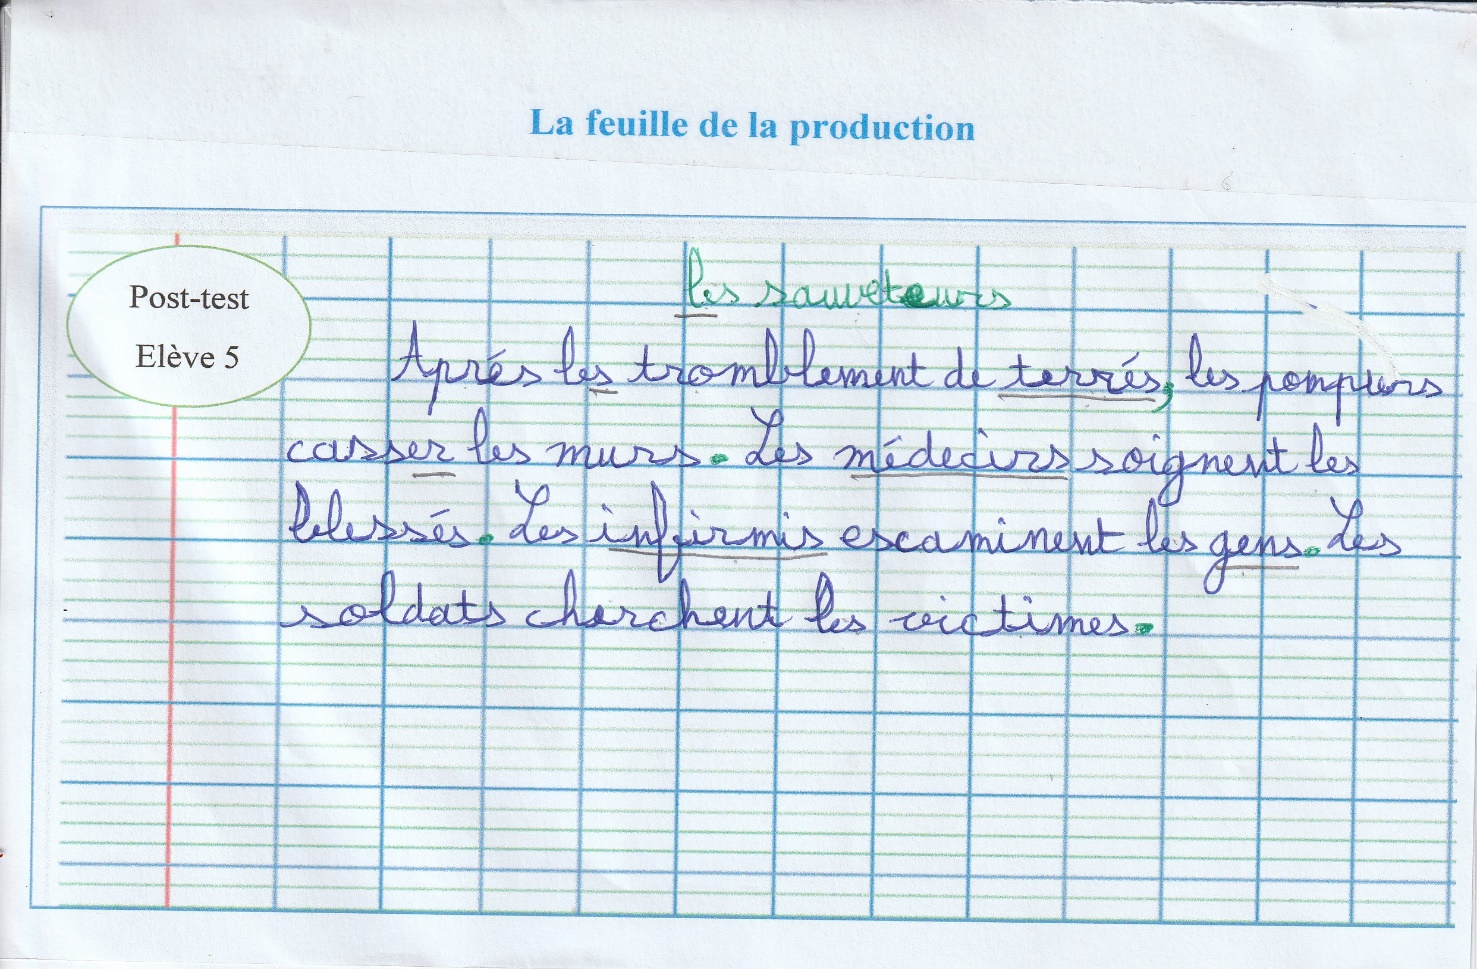 La feuille de la production
Post-test
Elève 5
les sauveteurs
Aprés les tromblement de terrés, les pompiers
casser les murs. Les médecirs soignent les
blessés. Les infirmis escaminent les gens. Les
soldats cherchent les victimes.